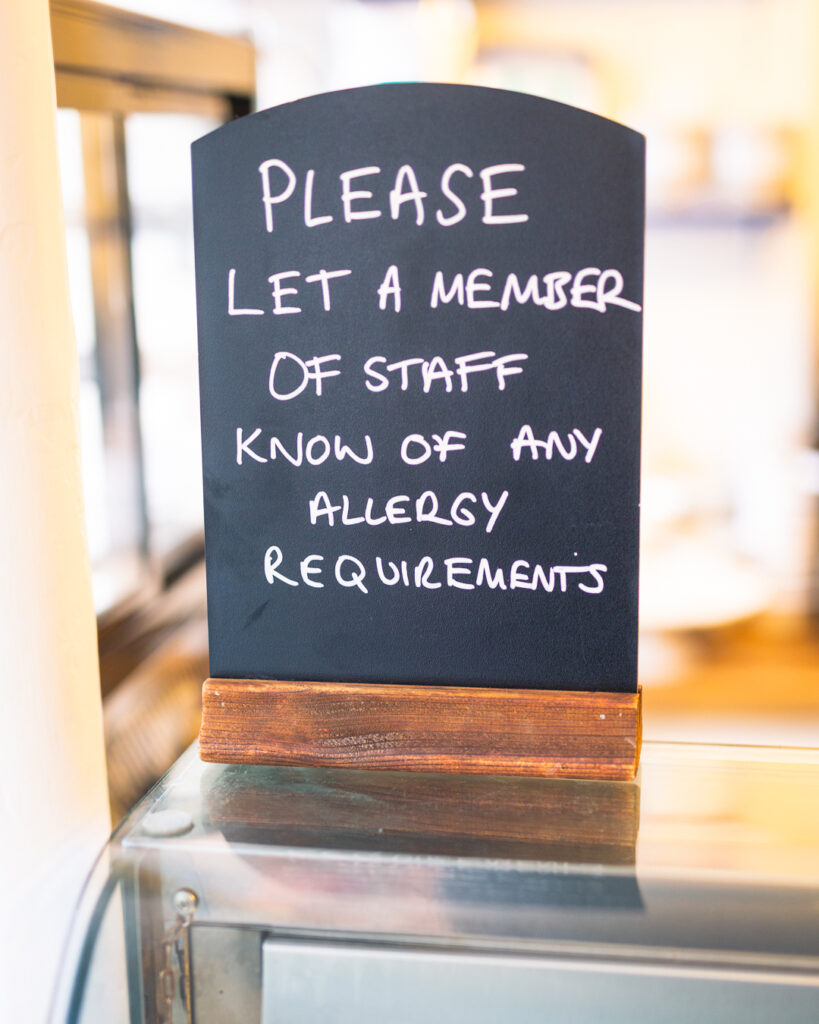 PLEASE
LET A MEMBER
OF STAFF
KNOW OF ANY
ALLERGY
REQUIREMENTS